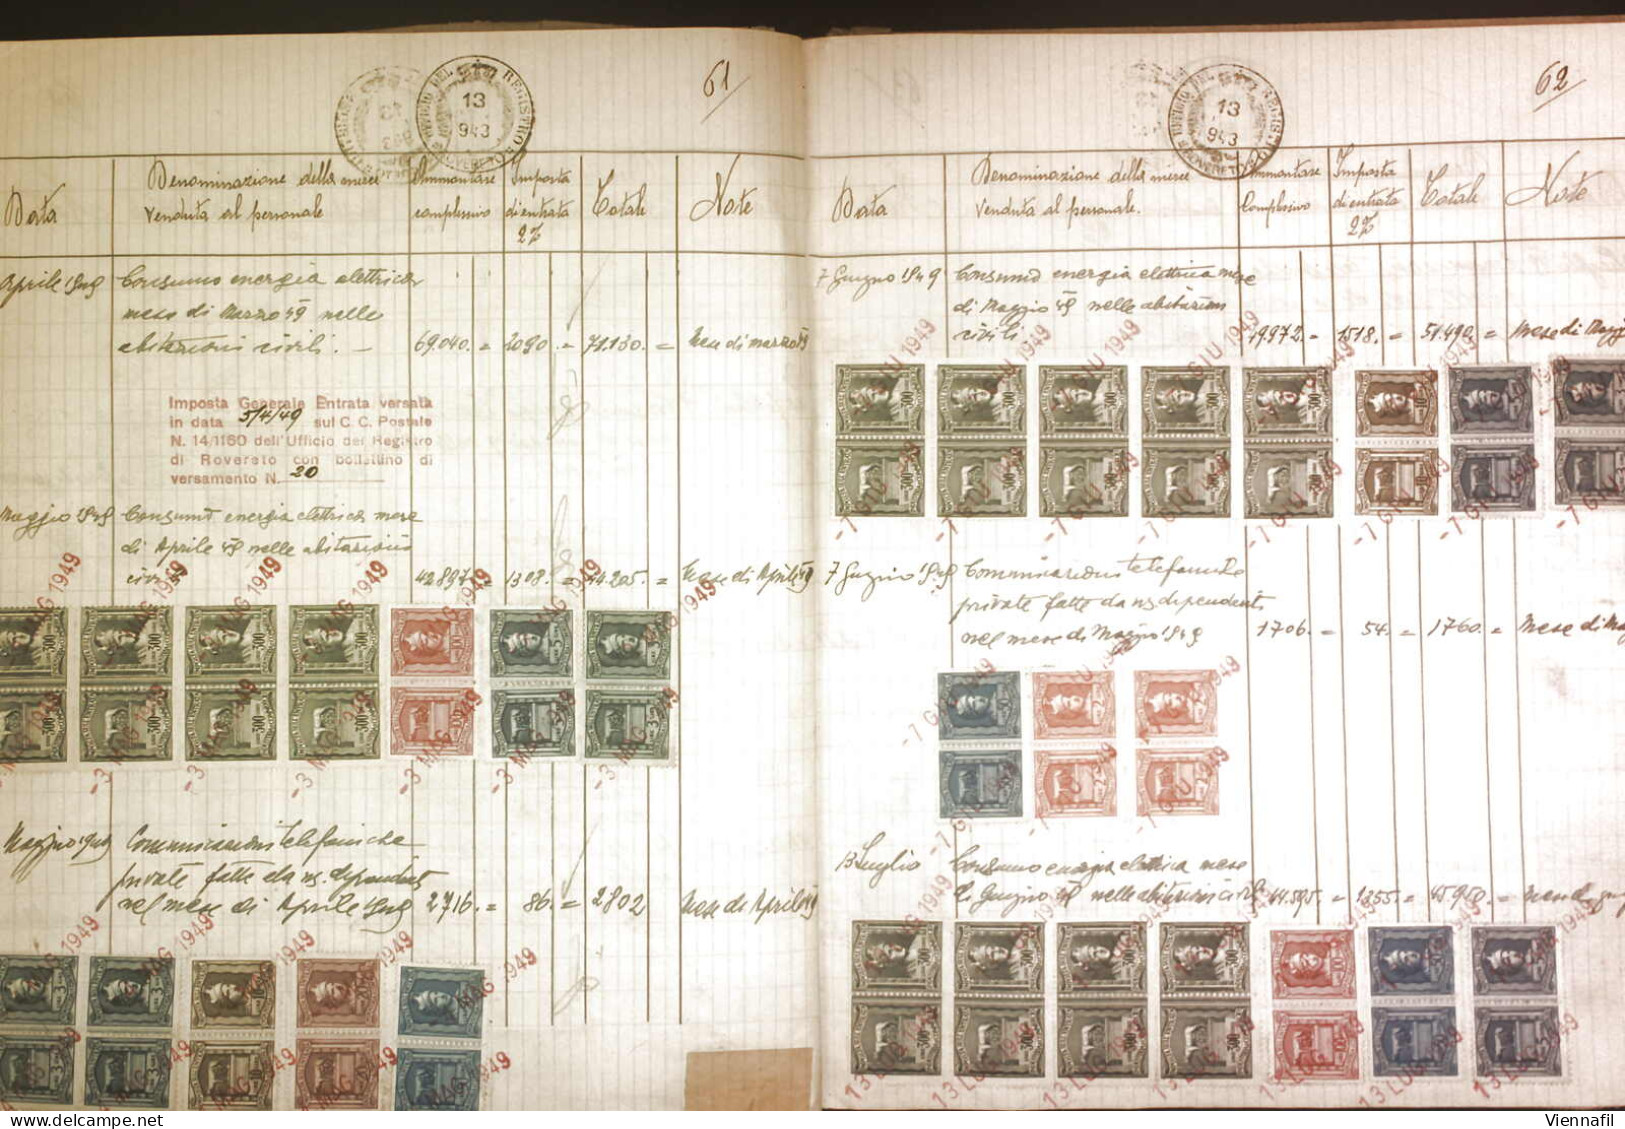 61
UFFICIO DEL REGISTRO
13
943
ROVERETO
Data
Denominazione della merce
venduta al personale
Ammontare
complessivo
Imposta
di entrata
2%
Totale
Note
Aprile 1949
Consumo energia elettrica
mese di Marzo 49 nelle
abitazioni civili. —
69.040. =
2090. =
71.130. =
Mese di marzo 49
Imposta Generale Entrata versata
in data 5/4/49 sul C. C. Postale
N. 14/1160 dell'Ufficio del Registro
di Rovereto con bollettino di
versamento N. 20
Maggio 1949
Consumo energia elettrica mese
di Aprile 49 nelle abitazioni
civili
42897 =
1308. =
44.205. =
Mese di Aprile 49
-3 MAG 1949
Maggio 1949
Comunicazioni telefoniche
private fatte da ns. dipendenti
nel mese di Aprile 1949
2716. =
86. =
2802
Mese di Aprile 49
MAG 1949
62
UFFICIO DEL REGISTRO
13
943
ROVERETO
Data
Denominazione della merce
venduta al personale.
Ammontare
Complessivo
Imposta
di entrata
2%
Totale
Note
7 Giugno 1949
Consumo energia elettrica mese
di Maggio 49 nelle abitazioni
civili
49972 =
1518. =
51.490. =
Mese di Maggi
-7 GIU 1949
7 Giugno 1949
Comunicazioni telefoniche
private fatte da ns. dipendenti
nel mese di Maggio 1949
1706. =
54. =
1760. =
Mese di Ma
-7 GIU 1949
13 Luglio
Consumo energia elettrica mese
di Giugno 49 nelle abitazioni civili
44.595. =
1355. =
45.950. =
Mese di giug
13 LUG 1949
Viennafil